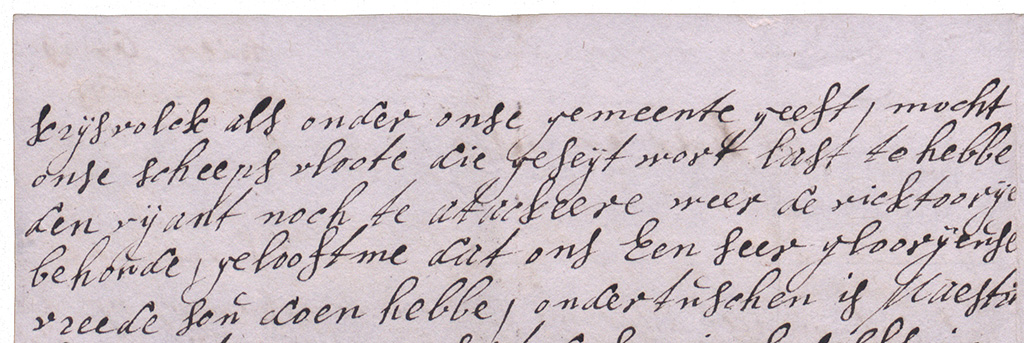 krijsvolck als onder onse gemeente geeft, mocht
onse scheeps vloote die geseyt wort last te hebbe
den vyant noch te attackeere weer de vicktoorye
behoude, gelooftme dat ons Een seer glooryeuse
vreede soŭ doen hebbe, ondertuschen is